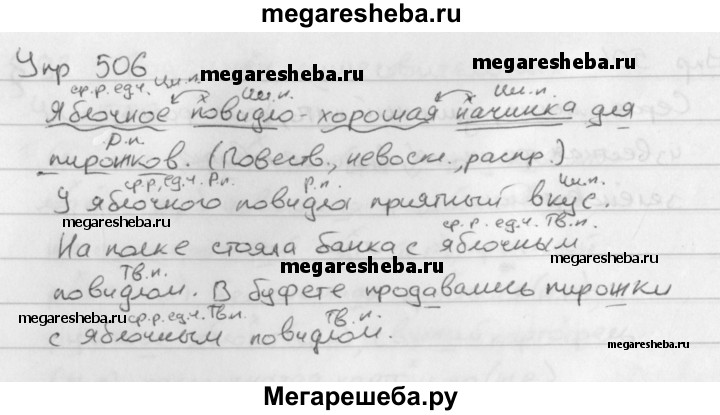 megaresheba.ru
Упр 506
megaresheba.ru
ср.р. ед.ч. Им.п. Им.п. Им.п.
Яблочное повидло - хорошая начинка для
р.п.
пирожков. (Повеств., невоскл., распр.)
ср.р. ед.ч. Р.п. Р.п. Им.п.
У яблочного повидла приятный вкус.
megaresheba.ru megaresheba.ru
ср.р. ед.ч. Тв.п.
На полке стояла банка с яблочным
Тв.п. megaresheba.ru
повидлом. В буфете продавались пирожки
megaresheba.ru ср.р. ед.ч. Тв.п. Тв.п.
с яблочным повидлом.
megaresheba.ru
Мегарешеба.ру